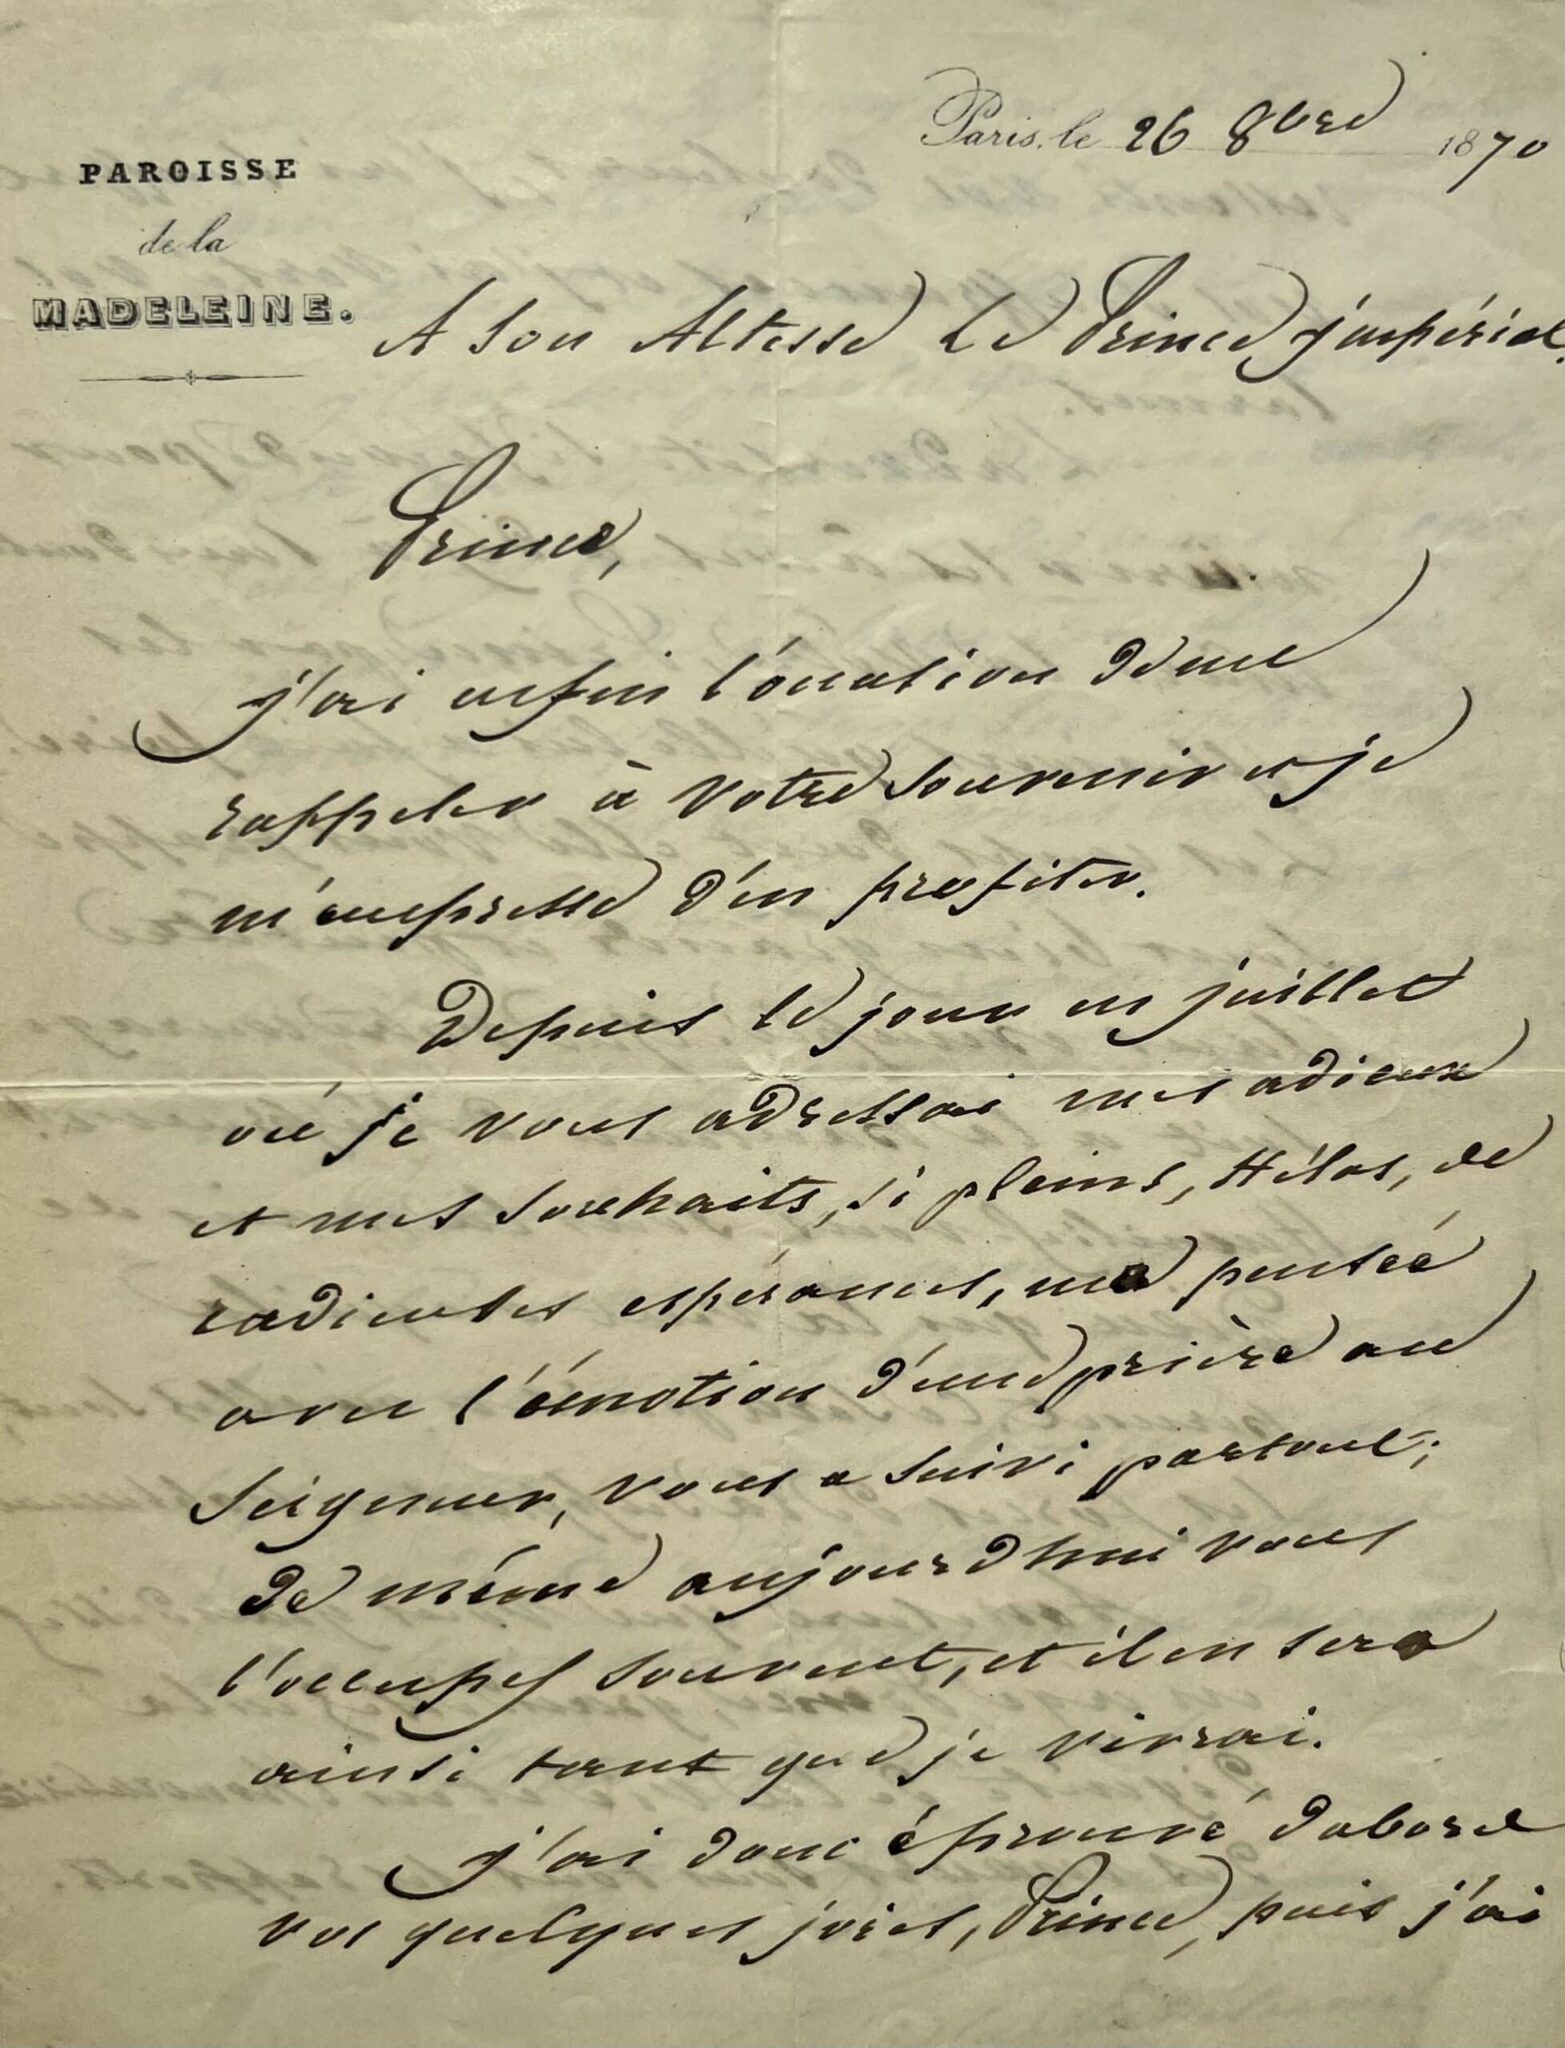 Paris, le 26 8bre 1870
PAROISSE
de la
MADELEINE.
A Son Altesse Le Prince Impérial.
Prince,
J'ai enfin l'occasion de me
rappeler à votre souvenir et je
m'empresse d'en profiter.
Depuis le jour en juillet
où je vous adressai mes adieux
et mes souhaits, si pleins, Hélas, de
radieuses espérances, ma pensée
avec l'émotion d'une prière au
Seigneur, vous a suivi partout;
de même aujourd'hui vous
l'occupez souvent, et il en sera
ainsi tant que je vivrai.
J'ai donc éprouvé d'abord
vos quelques joies, Prince, puis j'ai